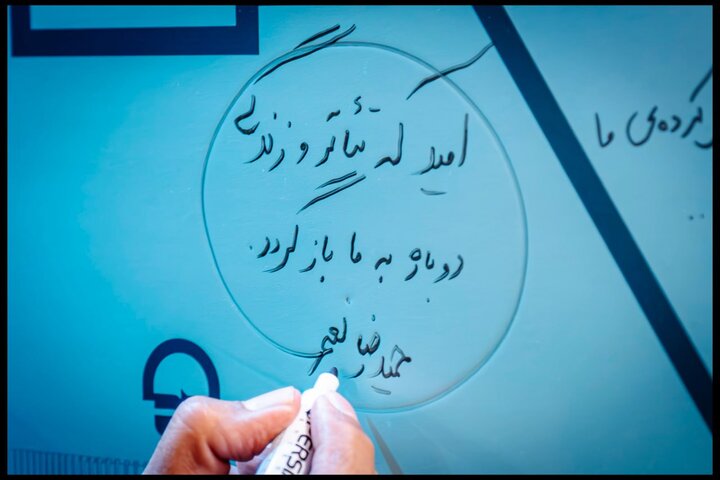 امید که تئاتر و زندگی
دوباره به ما بازگردد.
حمیدرضا نعیمی
کرده‌ی ما